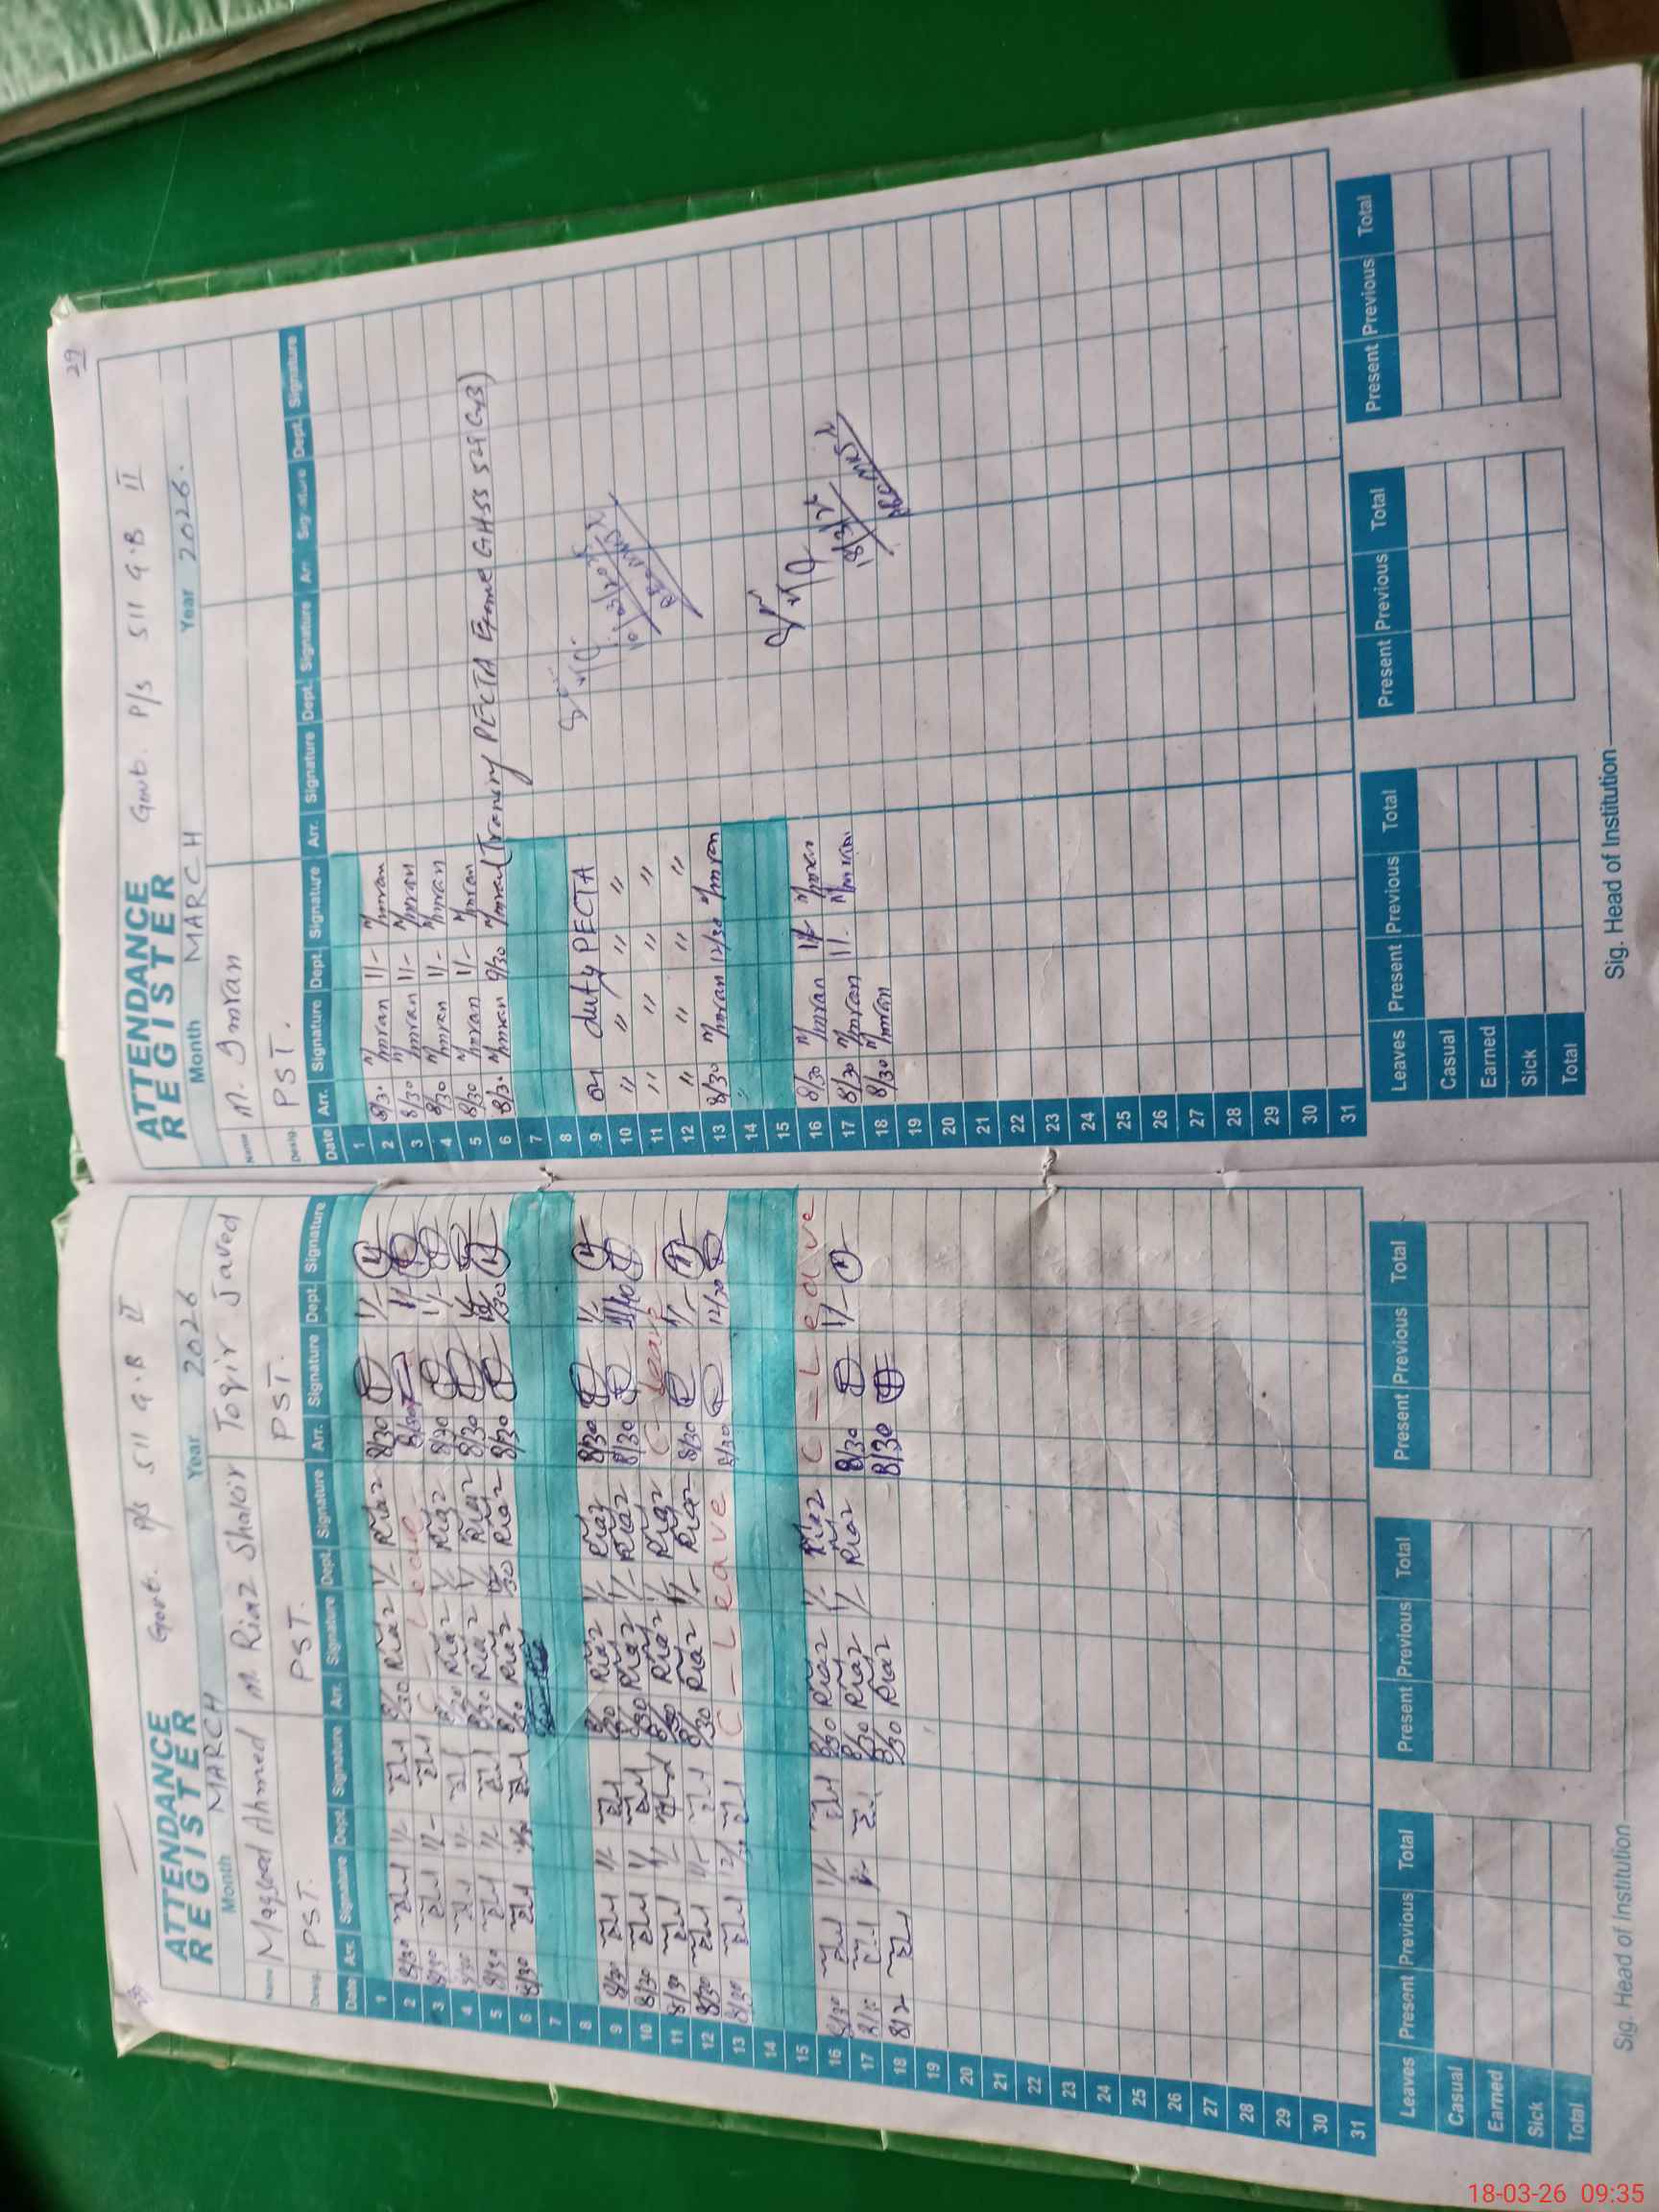 28
ATTENDANCE REGISTER
Govt. P/S 511 G.B II
Month MARCH Year 2026
Name Maqsood Ahmed M Riaz Shakir Toqir Javed
Desig. PST. PST. PST.
Date Arr. Signature Dept. Signature Arr. Signature Dept. Signature Arr. Signature Dept. Signature
1
2 8/30 1/- 8/30 Riaz 1/- Riaz 8/30 1/-
3 8/30 1/- C - Leave 8/30 1/-
4 8/30 1/- 8/30 Riaz 1/- Riaz 8/30 1/-
5 8/30 1/- 8/30 Riaz 1/- Riaz 8/30
6 8/30 8/30 Riaz Riaz 8/30
7
8
9 8/30 1/- 8/30 Riaz 1/- Riaz 8/30 1/-
10 8/30 1/- 8/30 Riaz 1/- Riaz 8/30
11 8/30 1/- 8/30 Riaz 1/- Riaz C - Leave
12 8/30 1/- 8/30 Riaz 1/- Riaz 8/30 1/-
13 8/30 12/30 C - Leave 8/30 12/30
14
15
16 8/30 1/- 8/30 Riaz 1/- Riaz C - Leave
17 8/30 Riaz 1/- Riaz 8/30 1/-
18 8/30 Riaz 8/30
19
20
21
22
23
24
25
26
27
28
29
30
31
Leaves Present Previous Total Present Previous Total Present Previous Total
Casual
Earned
Sick
Total
Sig. Head of Institution
29
ATTENDANCE REGISTER
Govt. P/S 511 G.B II
Month MARCH Year 2026.
Name M. Imran
Desig. PST.
Date Arr. Signature Dept. Signature Arr. Signature Dept. Signature Arr. Signature Dept. Signature
1
2 8/30 Imran 1/- Imran
3 8/30 Imran 1/- Imran
4 8/30 Imran 1/- Imran
5 8/30 Imran 1/- Imran
6 8/30 Imran 9/30 Imran PECTA GHSS 529 GB)
7
8
9 on duty PECTA
10 " " " " "
11 " " " " "
12 " " " " "
13 8/30 Imran 12/30 Imran
14
15
16 8/30 Imran Imran
17 8/30 Imran 1/- Imran
18 8/30 Imran
19
20
21
22
23
24
25
26
27
28
29
30
31
Leaves Present Previous Total Present Previous Total Present Previous Total
Casual
Earned
Sick
Total
Sig. Head of Institution
18-03-26 09:35